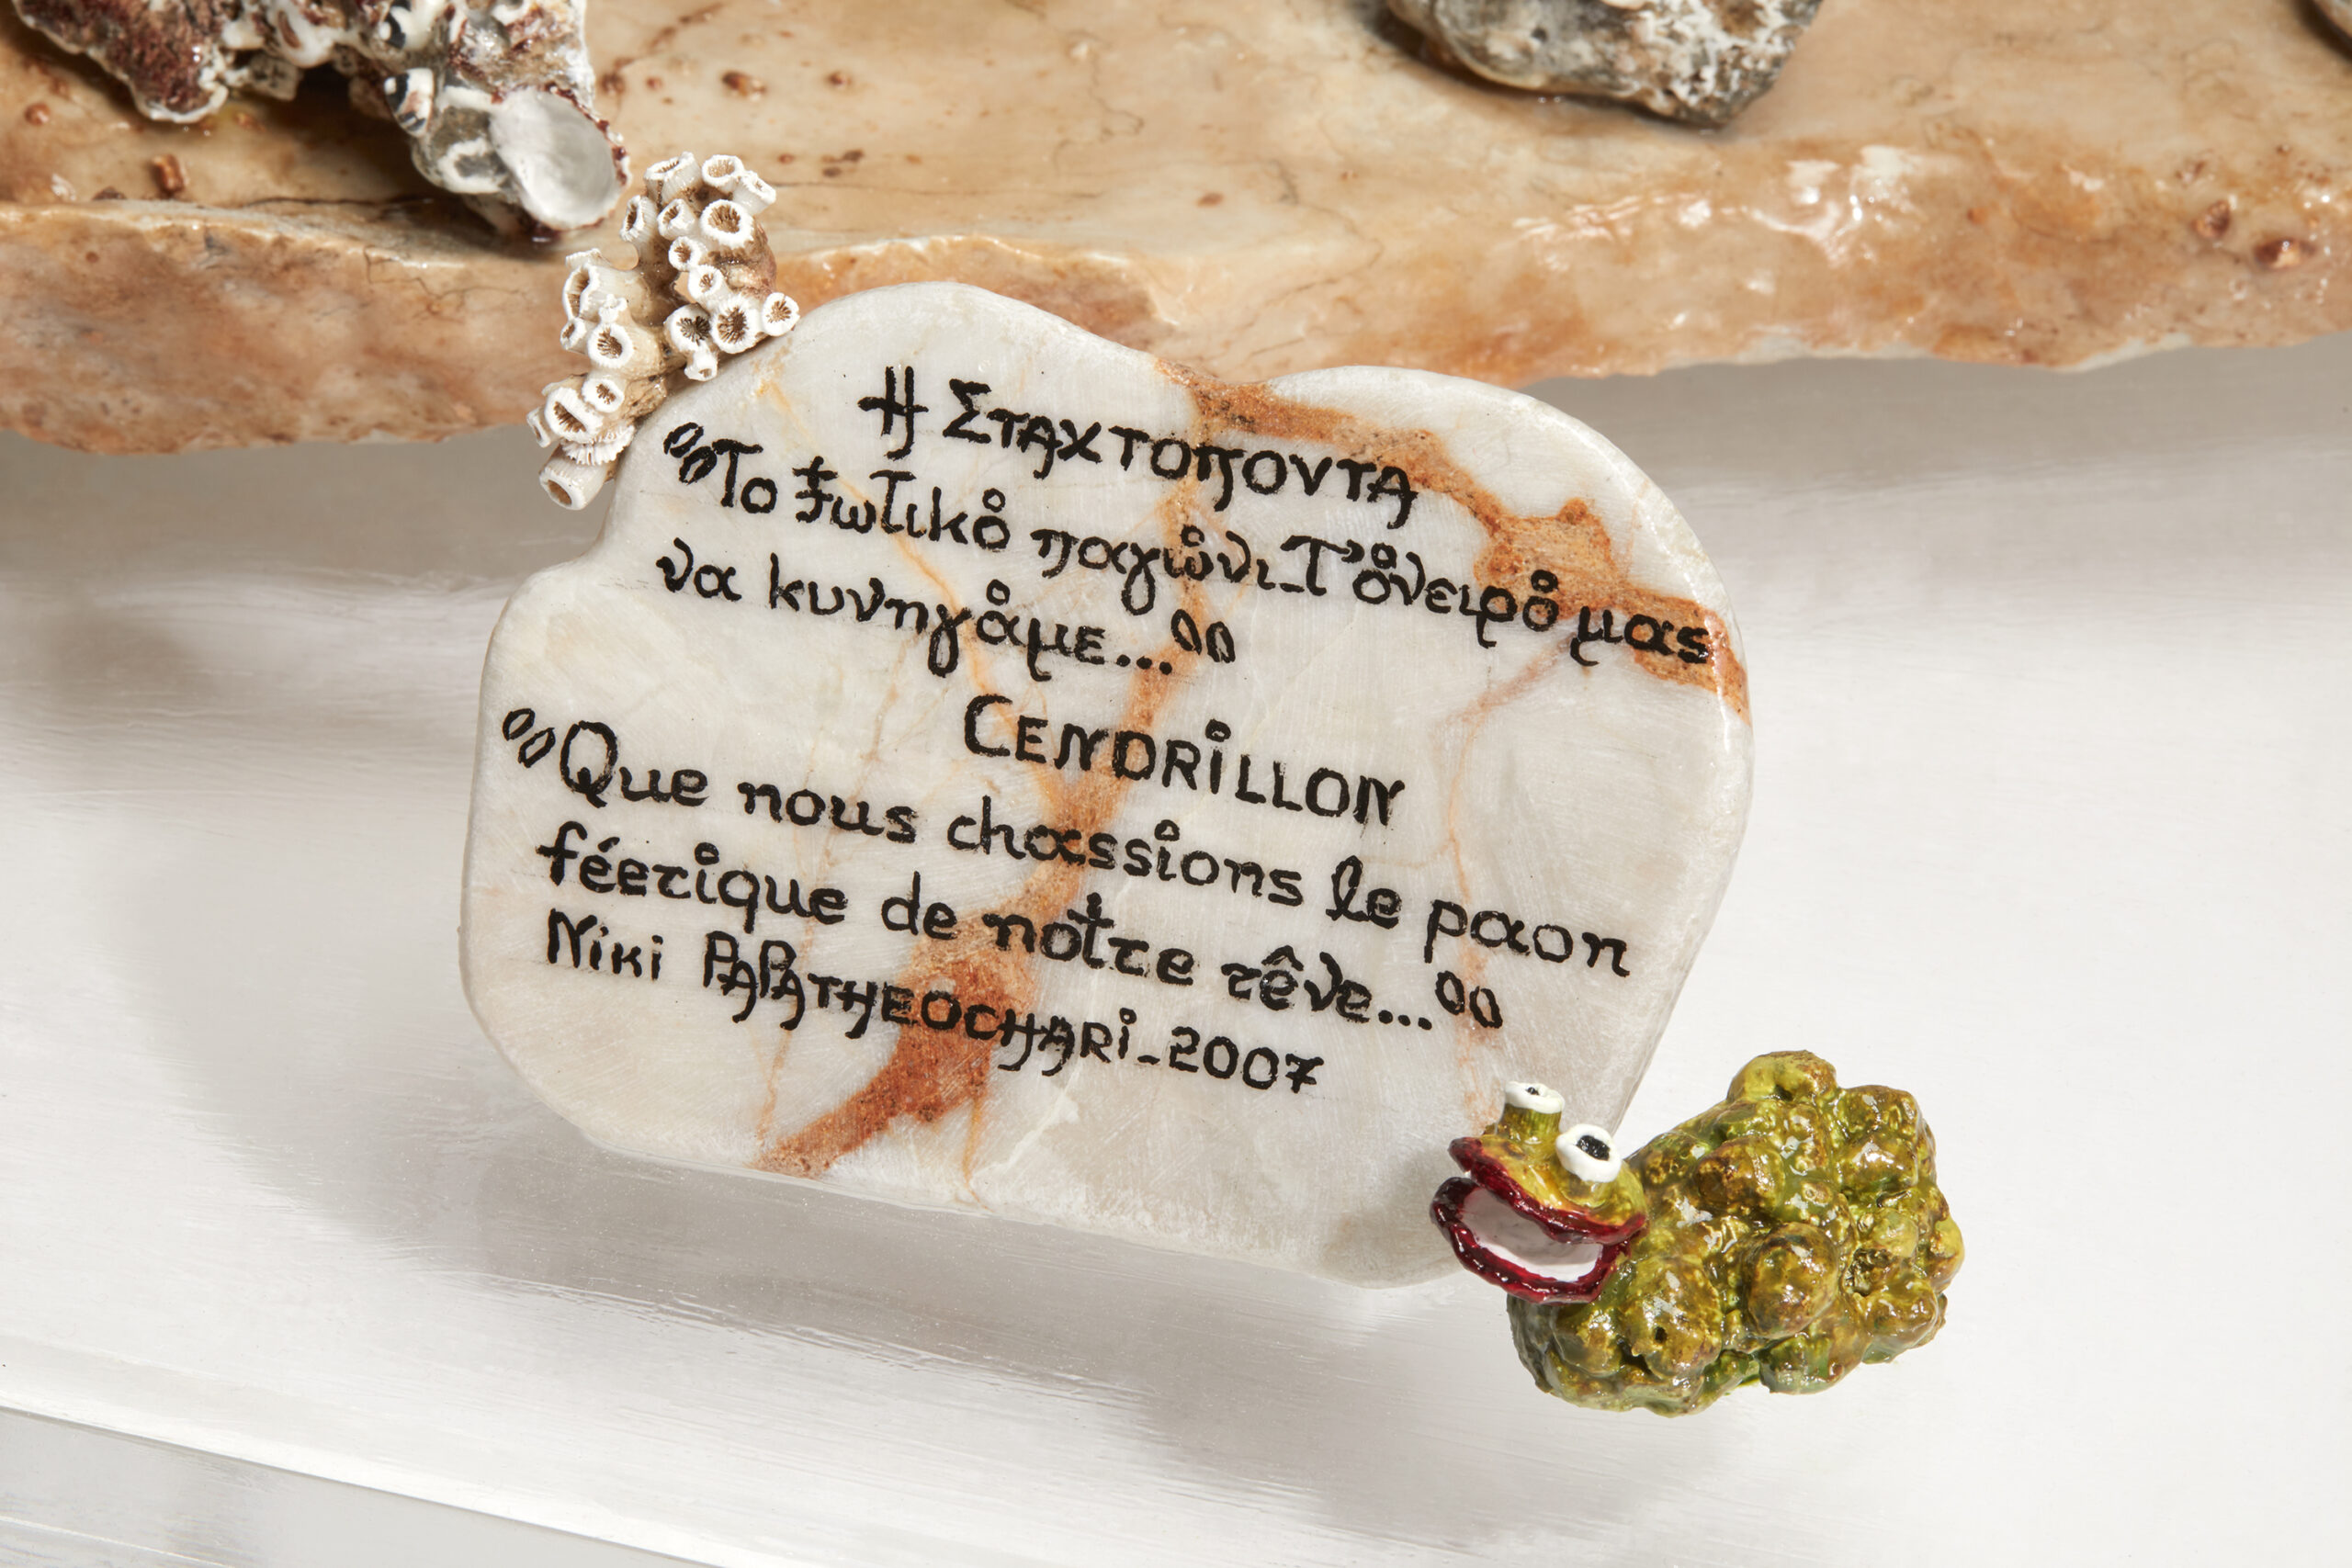 Η ΣΤΑΧΤΟΠΟΥΤΑ
"Το ξωτικό παγώνι_Τ' όνειρό μας
να κυνηγάμε..."
CENDRiLLON
"Que nous chassions le paon
féerique de notre rêve..."
Niki PAPATHEOCHARi_2007